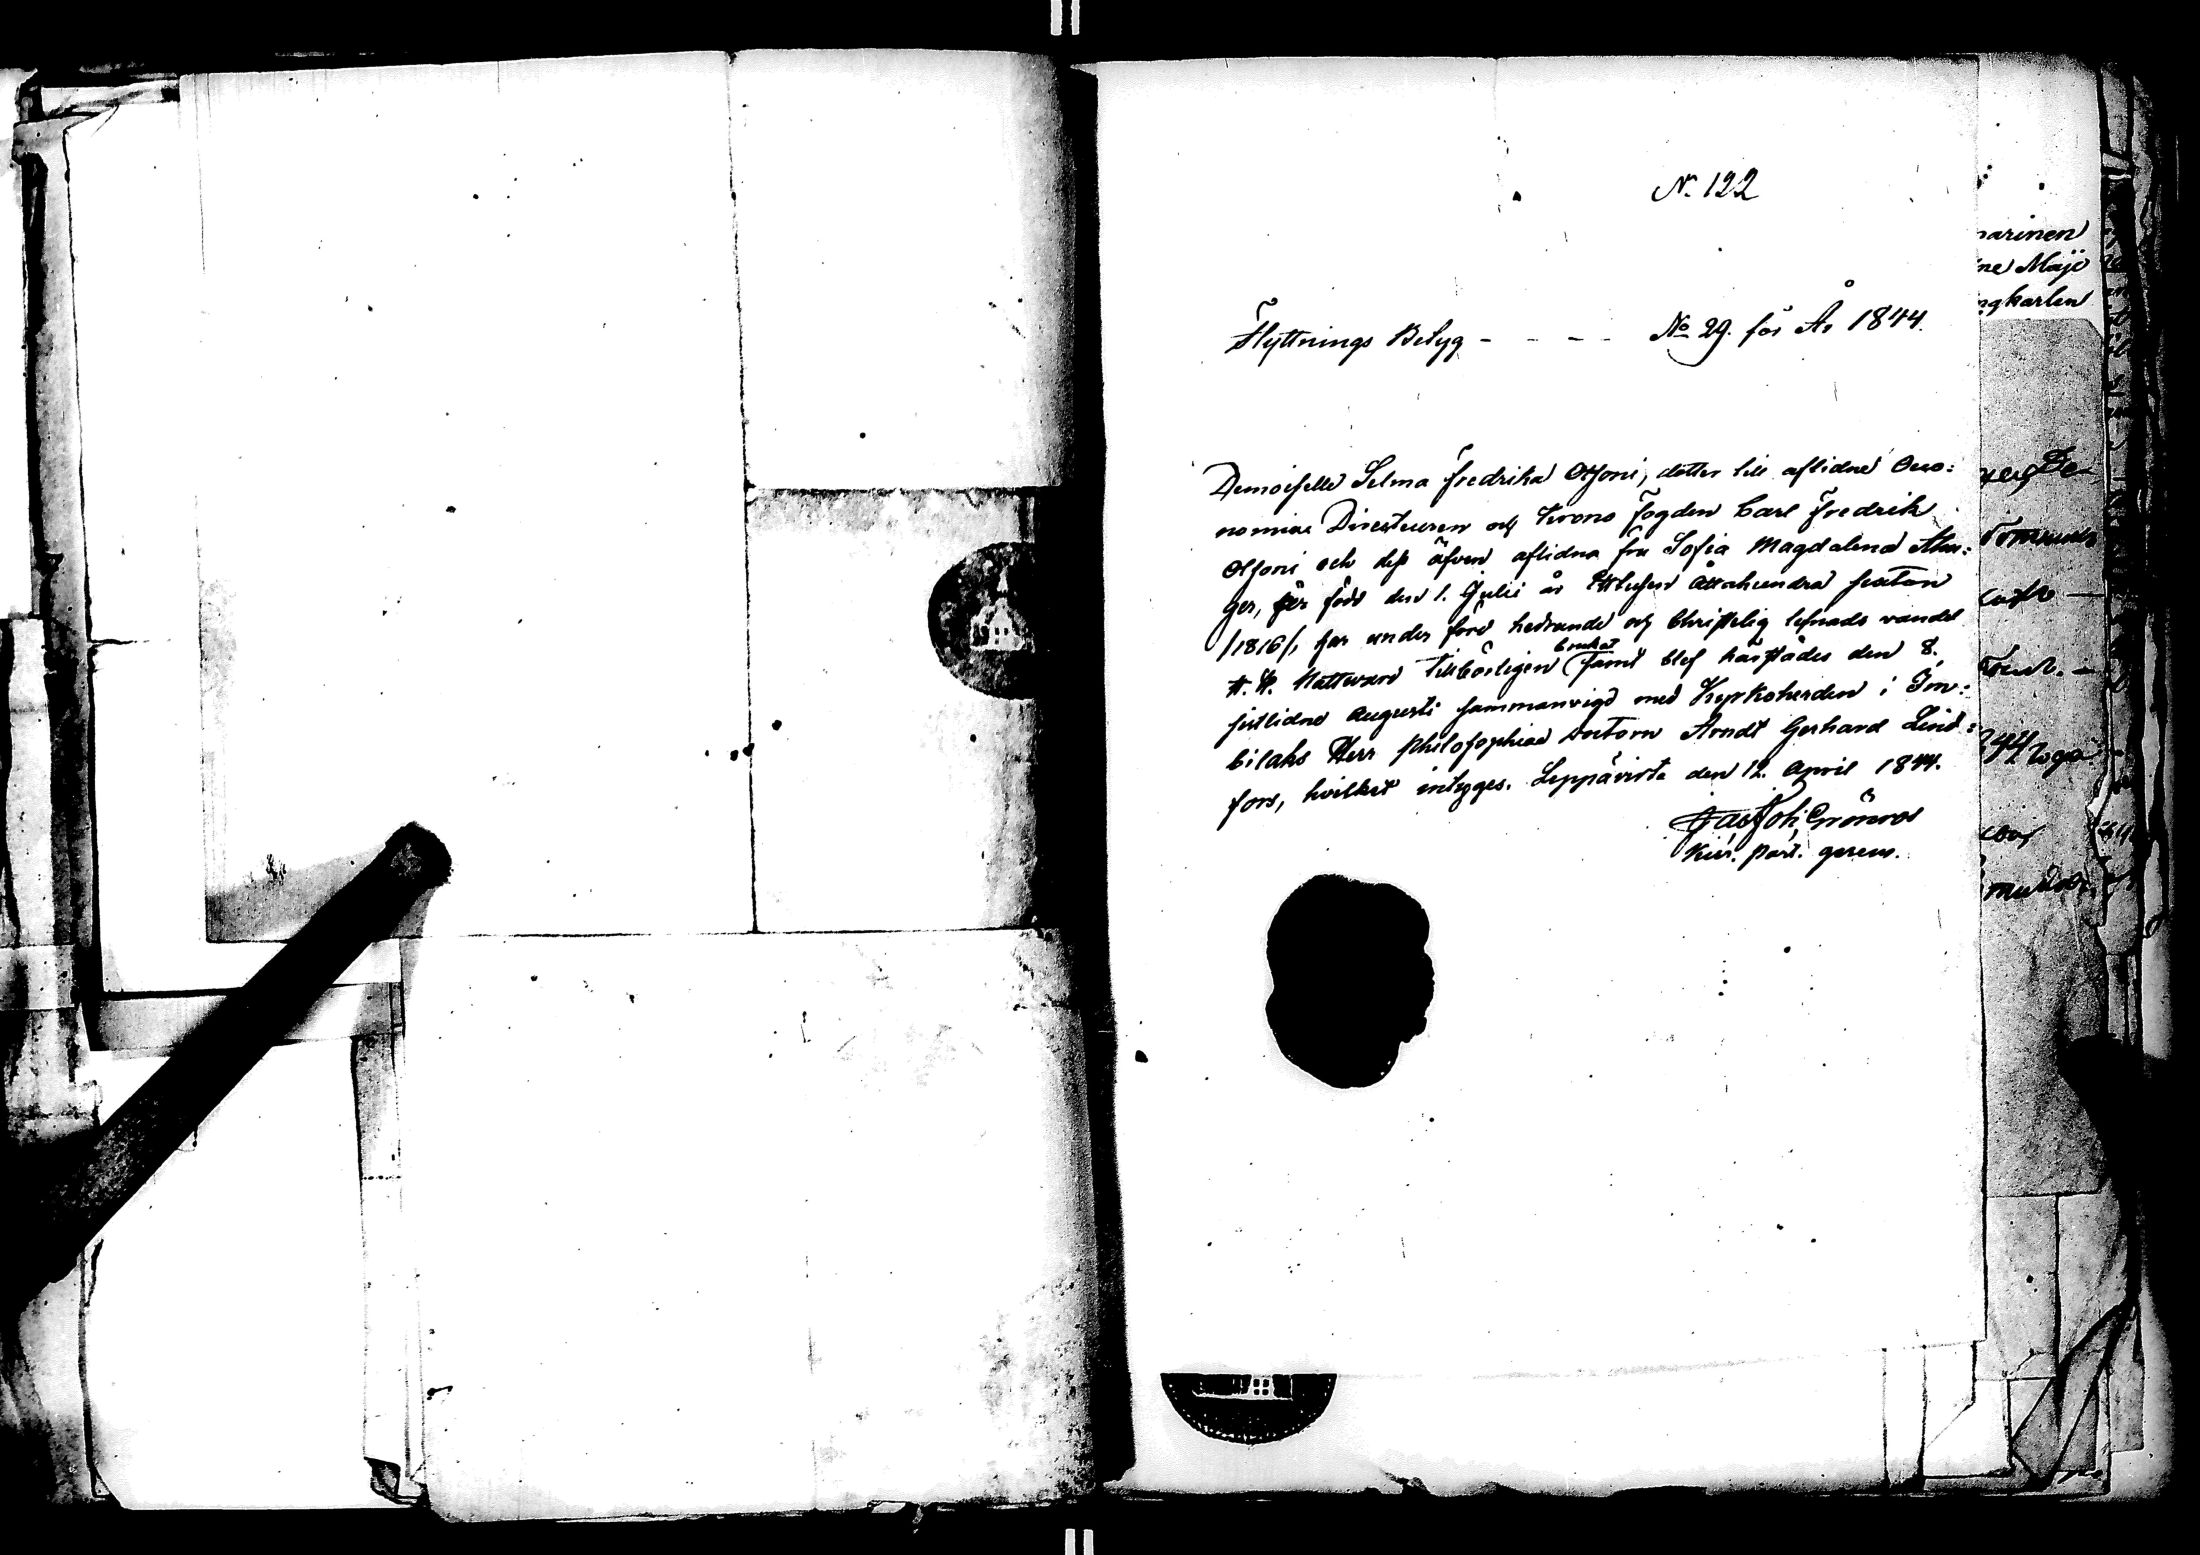 N. 122
Flyttnings Betyg - - - - No 29. för År 1844.
Demoiselle Selma Fredrika Ottoni, dotter till aflidne Oeco:
nomiae Directeuren och Krono Fogden Carl Fredrik
Ottoni och dess äfven aflidna fru Sofia Magdalena
ger, är född den 1. Julii år Ettusen Åttahundra sexton
/1816/, har under förd hedrande och Christelig lefnads vandel
H. H. Nattward tillbörligen brukat samt blef härstädes den 8.
sistlidne Augusti sammanvigd med Kyrkoherden i Im:
bilaks Herr Philosophiae Doctorn Arndt Gerhard Lind:
fors, hvilket intygas. Leppävirta den 12. April 1844.
Joh. Grönros
past.
arinen
ne Majo
ngkarlen